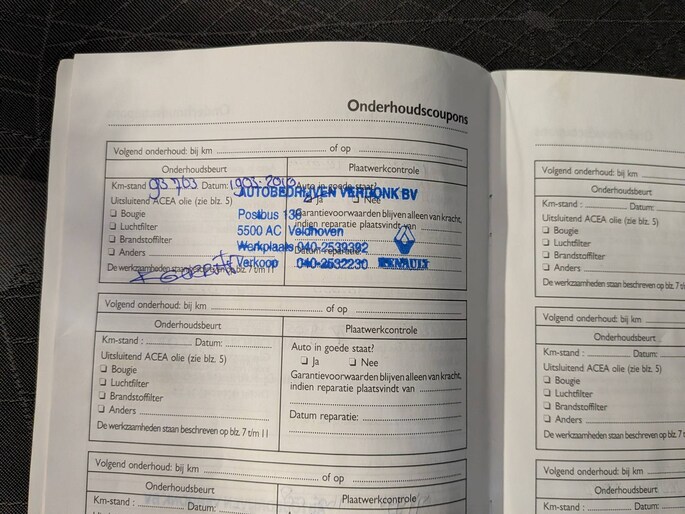 Onderhoudscoupons
Volgend onderhoud: bij km ........ of op ........
Onderhoudsbeurt
Plaatwerkcontrole
Km-stand 93 703 Datum: 19-05-2010
Auto in goede staat?
Uitsluitend ACEA olie (zie blz. 5)
❑ Ja ❑ Nee
❑ Bougie
Garantievoorwaarden blijven alleen van kracht,
❑ Luchtfilter
indien reparatie plaatsvindt van
❑ Brandstoffilter
Datum reparatie:
❑ Anders
De werkzaamheden staan beschreven op blz. 7 t/m 11
AUTOBEDRIJVEN VERDONK BV
Postbus 138
5500 AC Veldhoven
Werkplaats 040-2539392
Verkoop 040-2532230
RENAULT
Volgend onderhoud: bij km ........ of op ........
Onderhoudsbeurt
Plaatwerkcontrole
Km-stand : ........ Datum: ........
Auto in goede staat?
Uitsluitend ACEA olie (zie blz. 5)
❑ Ja ❑ Nee
❑ Bougie
Garantievoorwaarden blijven alleen van kracht,
❑ Luchtfilter
indien reparatie plaatsvindt van ........
❑ Brandstoffilter
❑ Anders ........
Datum reparatie: ........
De werkzaamheden staan beschreven op blz. 7 t/m 11
Volgend onderhoud: bij km ........ of op ........
Onderhoudsbeurt
Plaatwerkcontrole
Km-stand : ........ Datum: ........
Auto in goede staat?
Volgend onderhoud: bij km
Onderhoudsbeurt
Km-stand : ........ Datum: ........
Uitsluitend ACEA olie (zie blz. 5)
❑ Bougie
❑ Luchtfilter
❑ Brandstoffilter
❑ Anders ........
De werkzaamheden staan beschreven op blz. 7 t/m
Volgend onderhoud: bij km
Onderhoudsbeurt
Km-stand : ........ Datum:
Uitsluitend ACEA olie (zie blz. 5)
❑ Bougie
❑ Luchtfilter
❑ Brandstoffilter
❑ Anders ........
De werkzaamheden staan beschreven op blz. 7 t/m
Volgend onderhoud: bij km
Onderhoudsbeurt
Km-stand : ........ Datum: